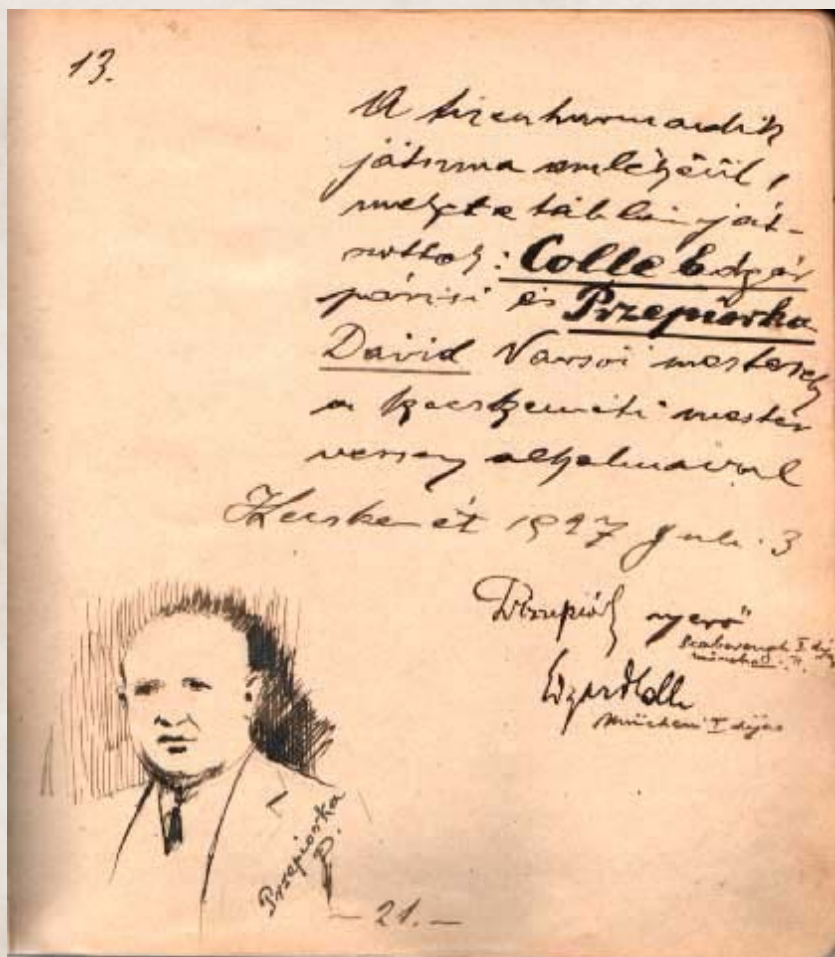 13.
A tizenharmadik
játszma emlékéül,
melyet e táblán ját-
szottak: Colle Edgár
párisi és Przepiórka
Dávid Varsói mesterek
a kecskeméti mester
verseny alkalmával
Kecskemét 1927 Juli. 3
DPrzepiórk nyerő
Scarborough I. díj
München II.
Edgard Colle
I díjas
Przepiorka
D.
- 21. -